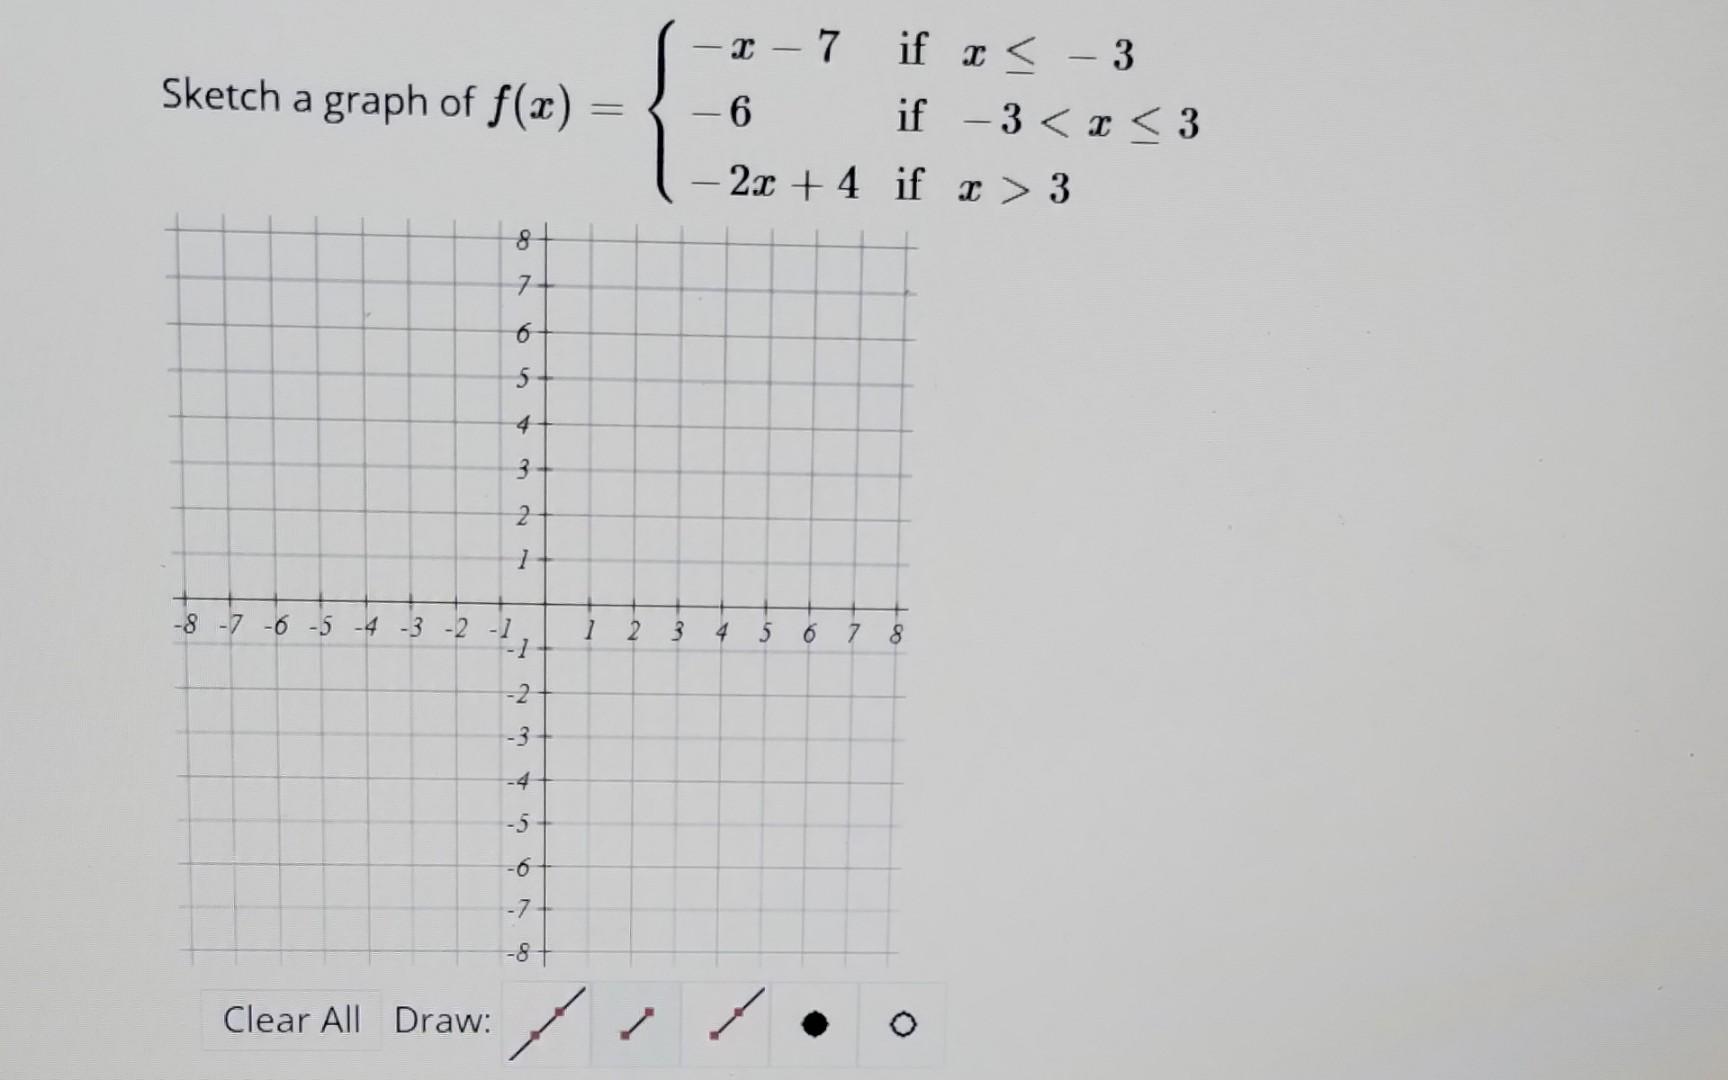 Sketch a graph of f(x) = { −x − 7 if x ≤ −3
−6 if −3 < x ≤ 3
−2x + 4 if x > 3
8
7
6
5
4
3
2
1
-8 -7 -6 -5 -4 -3 -2 -1 1 2 3 4 5 6 7 8
-1
-2
-3
-4
-5
-6
-7
-8
Clear All Draw: